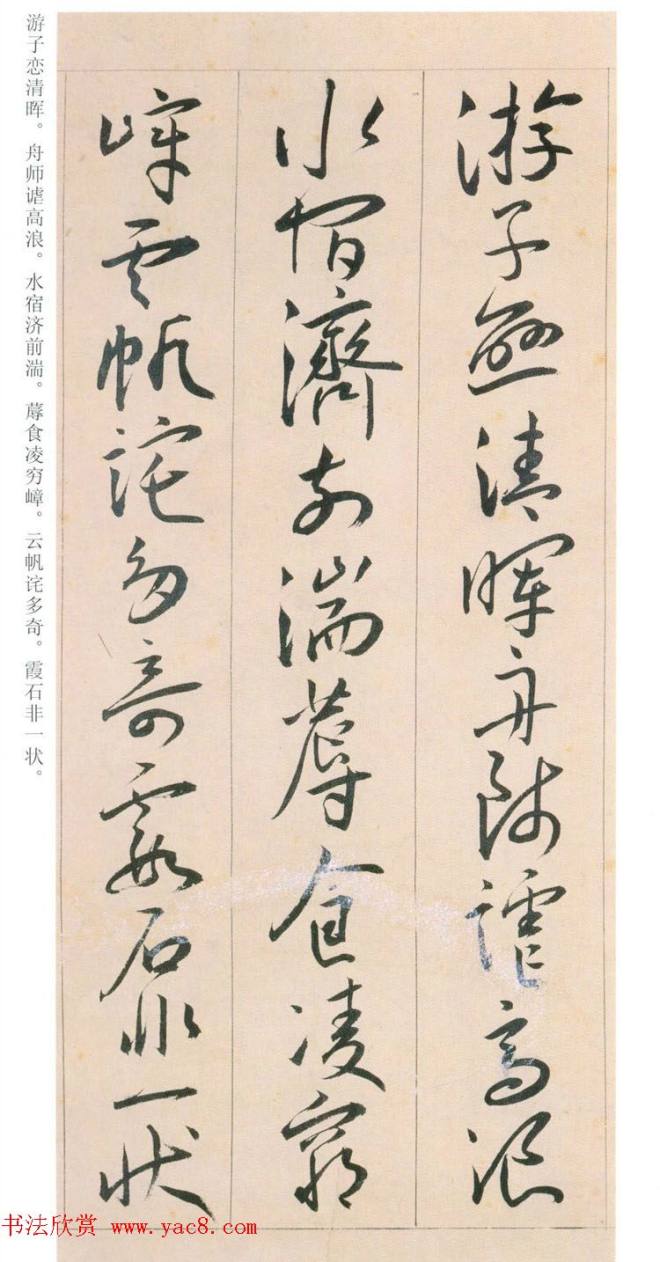 游子恋清晖。舟师谑高浪。水宿济前湍。蓐食凌穷嶂。云帆诧多奇。霞石非一状。
游子戀清暉舟師謔高浪
水宿濟前湍蓐食凌窮
嶂雲帆詫多奇霞石非一狀
书法欣赏 www.yac8.com